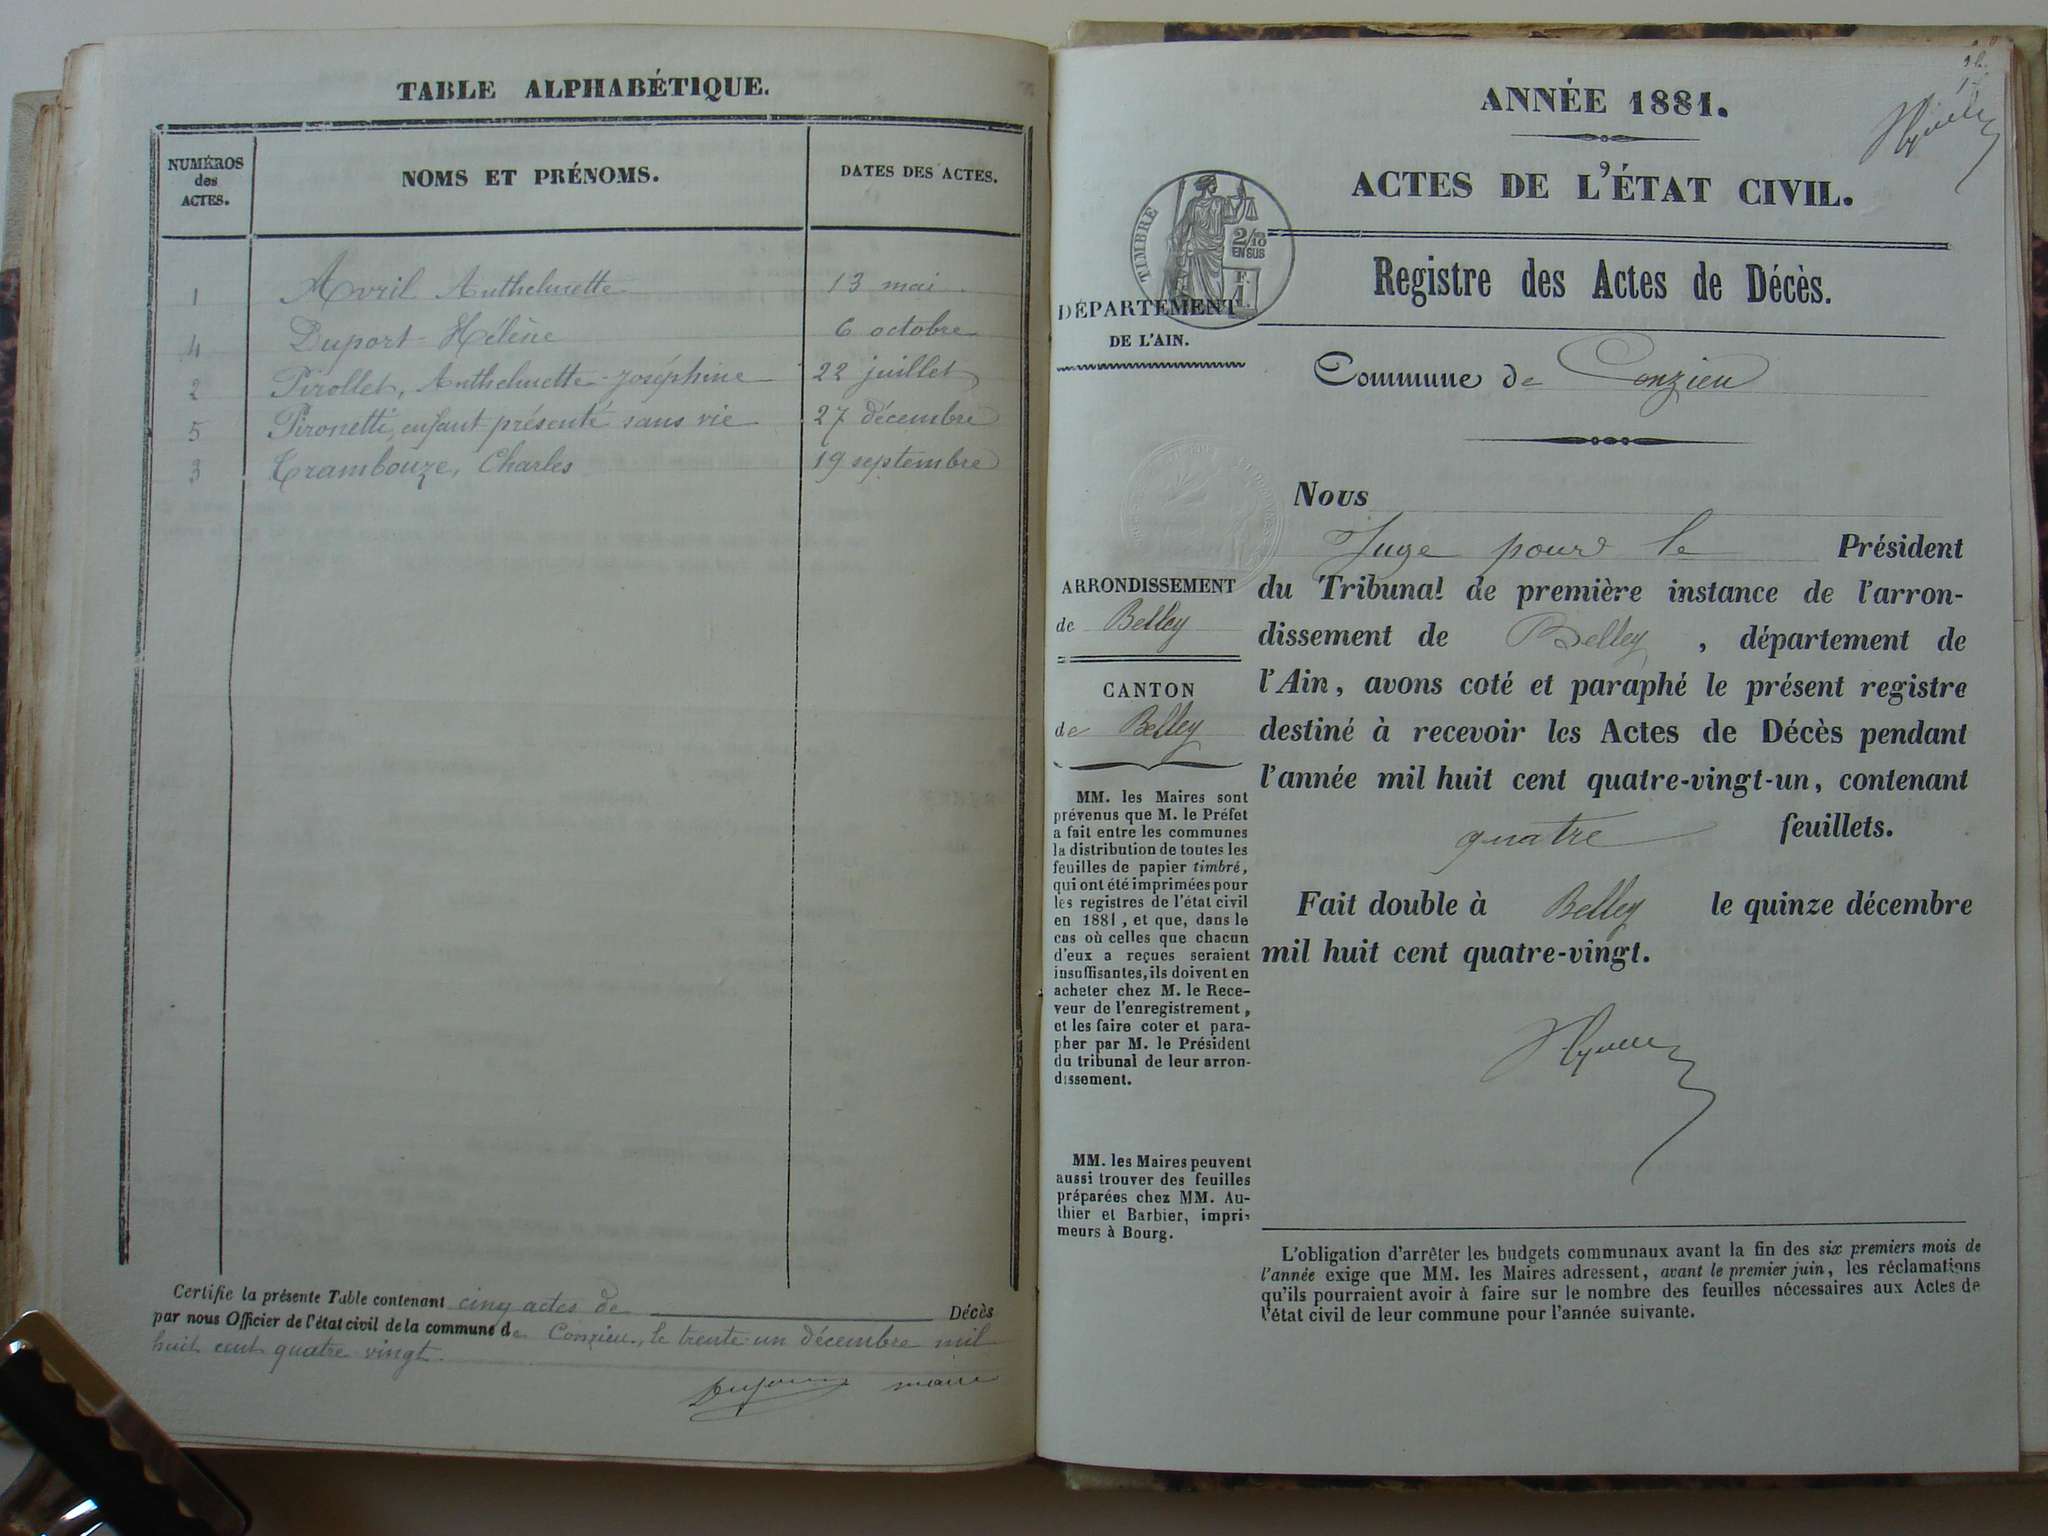 TABLE ALPHABÉTIQUE.
NUMÉROS
des
ACTES.
NOMS ET PRÉNOMS.
DATES DES ACTES.
1 Avril Anthelmette 13 mai
4 Duport Hélène 6 octobre
2 Pirollet, Anthelmette-Joséphine 22 juillet
5 Pironetti, enfant présenté sans vie 27 décembre
3 Trambouze, Charles 19 septembre
Certifie la présente Table contenant cinq actes de Décès
par nous Officier de l'état civil de la commune de Conzieu, le trente-un décembre mil
huit cent quatre-vingt.
maire
ANNÉE 1881.
ACTES DE L'ÉTAT CIVIL.
TIMBRE
2/10
EN SUS
F.
1.
Registre des Actes de Décès.
DÉPARTEMENT
DE L'AIN.
Commune de Conzieu
Nous
Juge pour le Président
du Tribunal de première instance de l'arron-
dissement de Belley, département de
l'Ain, avons coté et paraphé le présent registre
destiné à recevoir les Actes de Décès pendant
l'année mil huit cent quatre-vingt-un, contenant
quatre feuillets.
Fait double à Belley le quinze décembre
mil huit cent quatre-vingt.
ARRONDISSEMENT
de Belley
CANTON
de Belley
MM. les Maires sont
prévenus que M. le Préfet
a fait entre les communes
la distribution de toutes les
feuilles de papier timbré,
qui ont été imprimées pour
les registres de l'état civil
en 1881, et que, dans le
cas où celles que chacun
d'eux a reçues seraient
insuffisantes, ils doivent en
acheter chez M. le Rece-
veur de l'enregistrement,
et les faire coter et para-
pher par M. le Président
du tribunal de leur arron-
dissement.
MM. les Maires peuvent
aussi trouver des feuilles
préparées chez MM. Au-
thier et Barbier, impri-
meurs à Bourg.
L'obligation d'arrêter les budgets communaux avant la fin des six premiers mois de
l'année exige que MM. les Maires adressent, avant le premier juin, les réclamations
qu'ils pourraient avoir à faire sur le nombre des feuilles nécessaires aux Actes de
l'état civil de leur commune pour l'année suivante.